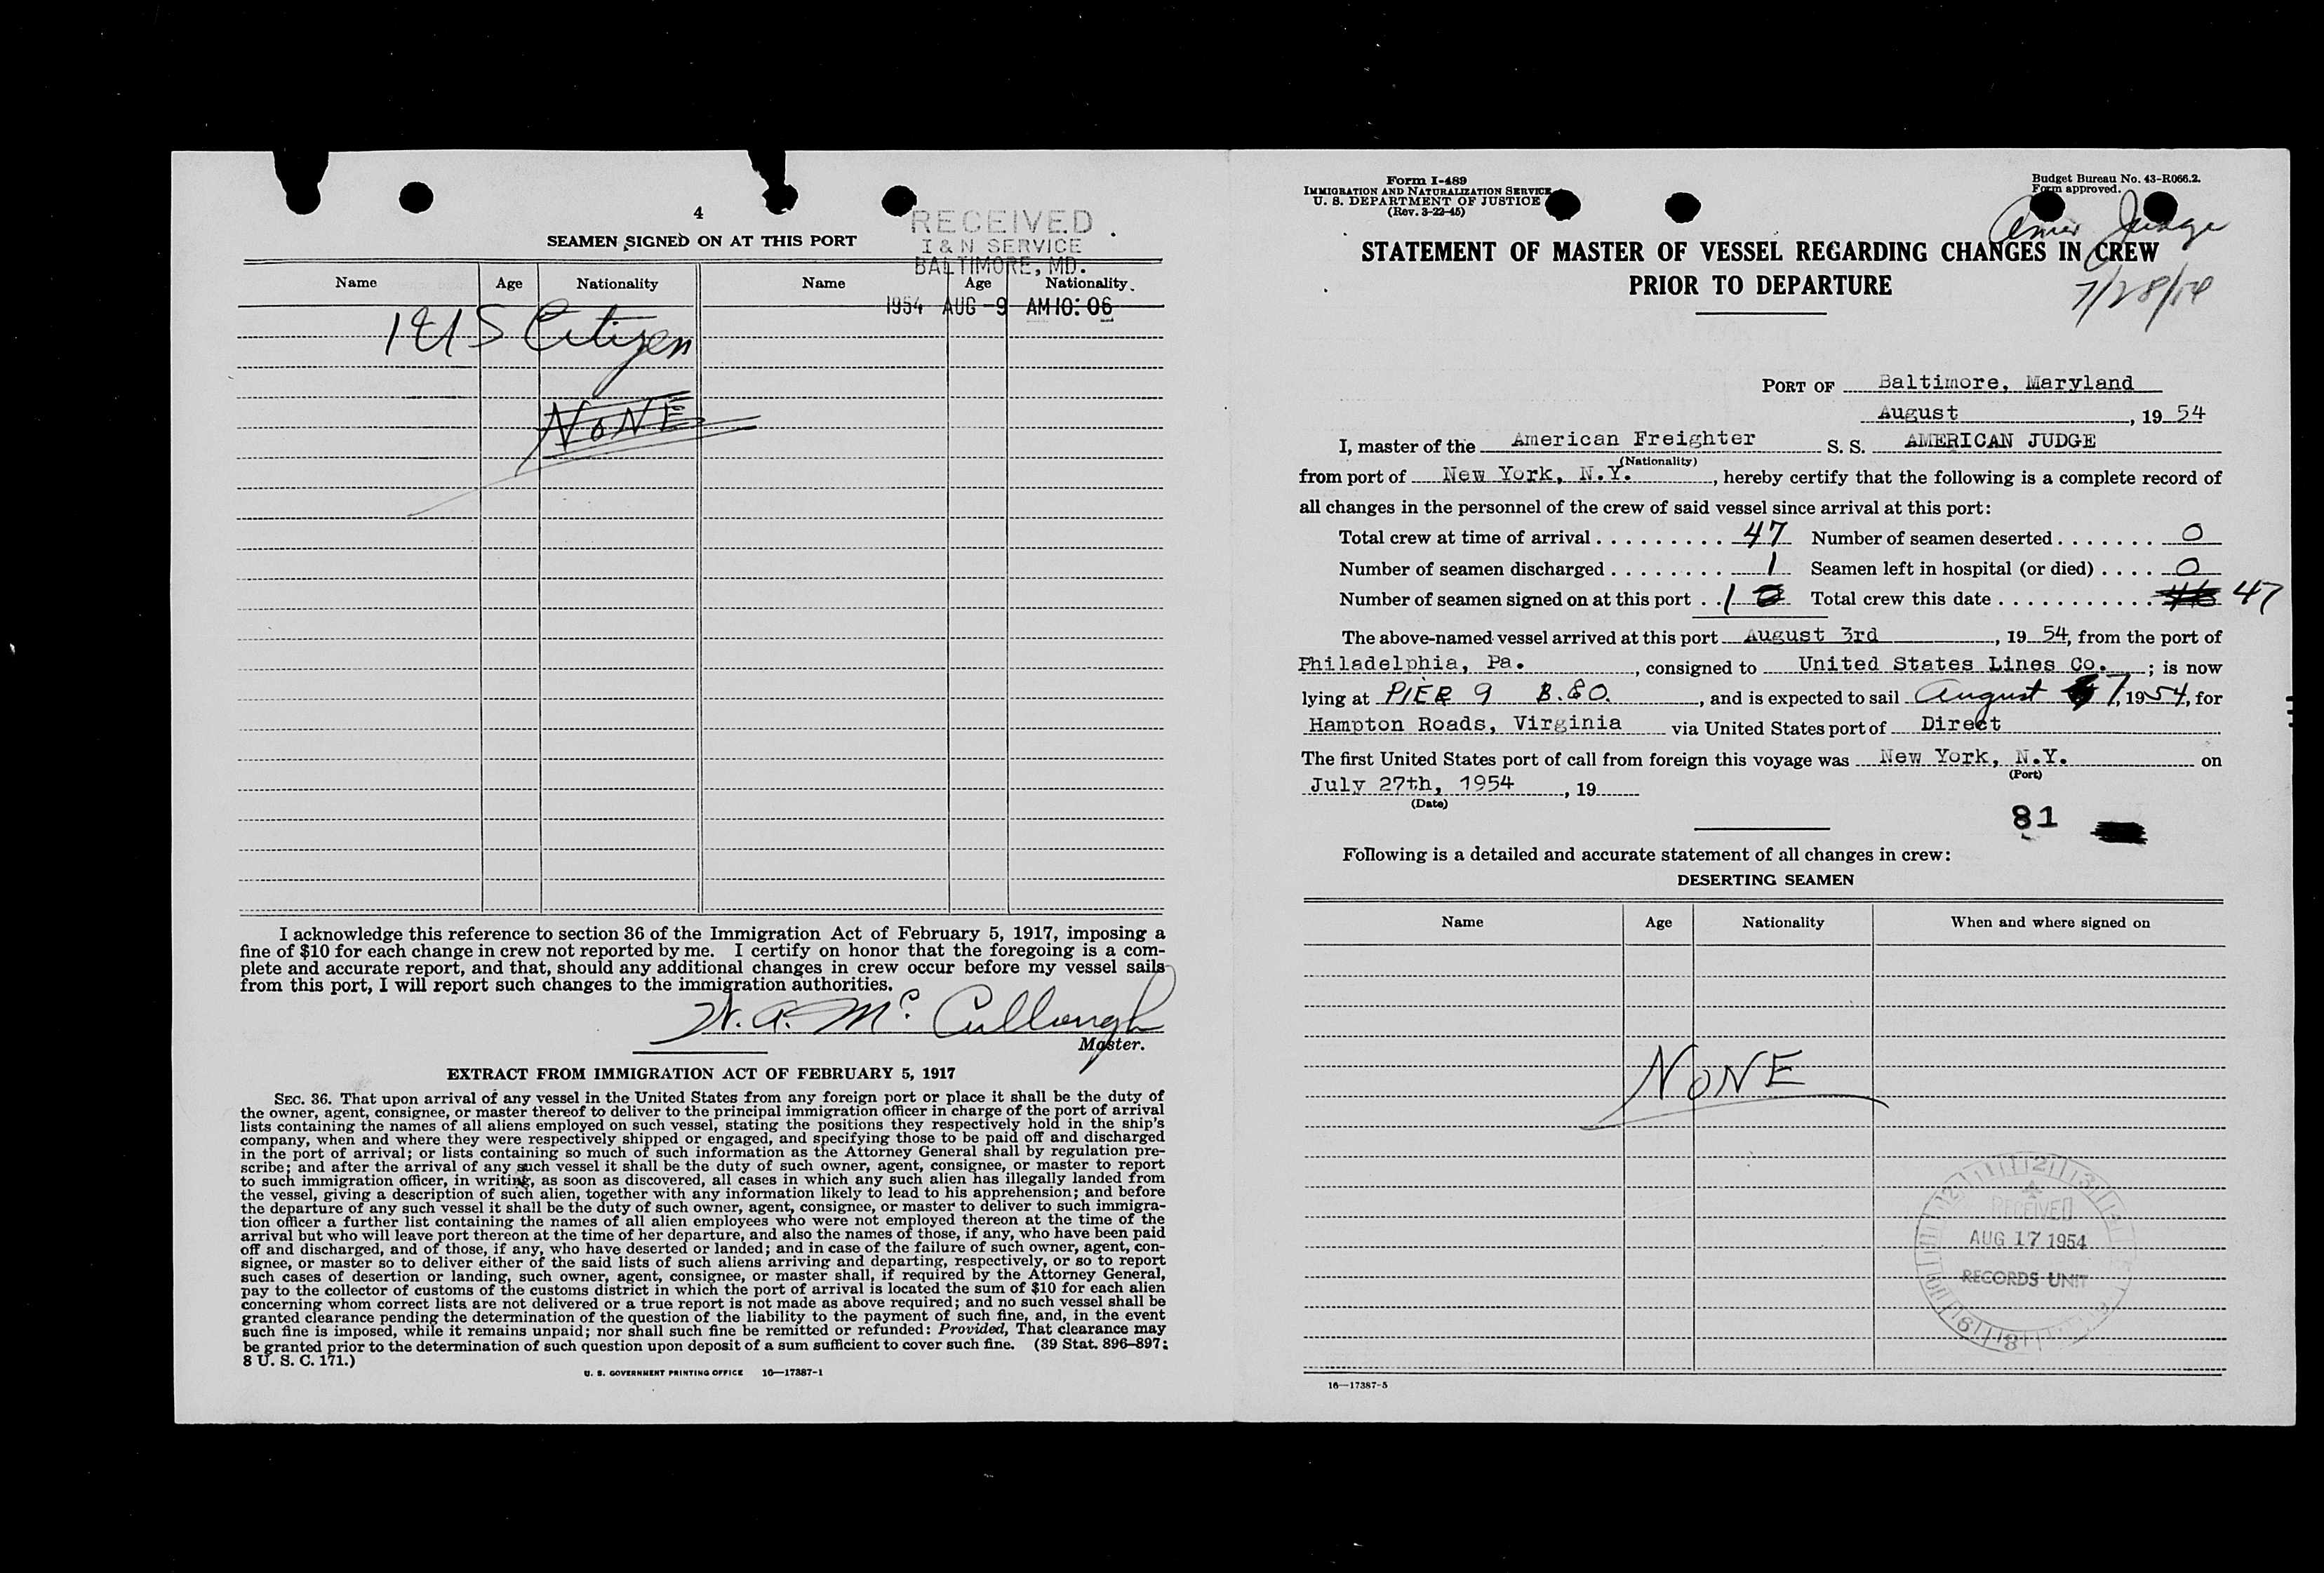 4
SEAMEN SIGNED ON AT THIS PORT
RECEIVED
I & N SERVICE
BALTIMORE, MD.
1954 AUG -9 AM 10:06
Name Age Nationality Name Age Nationality
1 US Citizen
NONE
I acknowledge this reference to section 36 of the Immigration Act of February 5, 1917, imposing a
fine of $10 for each change in crew not reported by me. I certify on honor that the foregoing is a com-
plete and accurate report, and that, should any additional changes in crew occur before my vessel sails
from this port, I will report such changes to the immigration authorities.
W. A. McCullough
Master.
EXTRACT FROM IMMIGRATION ACT OF FEBRUARY 5, 1917
SEC. 36. That upon arrival of any vessel in the United States from any foreign port or place it shall be the duty of
the owner, agent, consignee, or master thereof to deliver to the principal immigration officer in charge of the port of arrival
lists containing the names of all aliens employed on such vessel, stating the positions they respectively hold in the ship's
company, when and where they were respectively shipped or engaged, and specifying those to be paid off and discharged
in the port of arrival; or lists containing so much of such information as the Attorney General shall by regulation pre-
scribe; and after the arrival of any such vessel it shall be the duty of such owner, agent, consignee, or master to report
to such immigration officer, in writing, as soon as discovered, all cases in which any such alien has illegally landed from
the vessel, giving a description of such alien, together with any information likely to lead to his apprehension; and before
the departure of any such vessel it shall be the duty of such owner, agent, consignee, or master to deliver to such immigra-
tion officer a further list containing the names of all alien employees who were not employed thereon at the time of the
arrival but who will leave port thereon at the time of her departure, and also the names of those, if any, who have been paid
off and discharged, and of those, if any, who have deserted or landed; and in case of the failure of such owner, agent, con-
signee, or master so to deliver either of the said lists of such aliens arriving and departing, respectively, or so to report
such cases of desertion or landing, such owner, agent, consignee, or master shall, if required by the Attorney General,
pay to the collector of customs of the customs district in which the port of arrival is located the sum of $10 for each alien
concerning whom correct lists are not delivered or a true report is not made as above required; and no such vessel shall be
granted clearance pending the determination of the question of the liability to the payment of such fine, and, in the event
such fine is imposed, while it remains unpaid; nor shall such fine be remitted or refunded: Provided, That clearance may
be granted prior to the determination of such question upon deposit of a sum sufficient to cover such fine. (39 Stat. 896–897;
8 U. S. C. 171.)
U. S. GOVERNMENT PRINTING OFFICE 16—17387-1
Form I-489
IMMIGRATION AND NATURALIZATION SERVICE
U. S. DEPARTMENT OF JUSTICE
(Rev. 3-22-45)
Budget Bureau No. 43-R066.2.
Form approved.
Amer Judge
7/28/54
STATEMENT OF MASTER OF VESSEL REGARDING CHANGES IN CREW
PRIOR TO DEPARTURE
PORT OF Baltimore, Maryland
August, 19 54
I, master of the American Freighter S. S. AMERICAN JUDGE
(Nationality)
from port of New York, N.Y., hereby certify that the following is a complete record of
all changes in the personnel of the crew of said vessel since arrival at this port:
Total crew at time of arrival . . . . . . . . . 47 Number of seamen deserted . . . . . . . 0
Number of seamen discharged . . . . . . . . 1 Seamen left in hospital (or died) . . . . 0
Number of seamen signed on at this port . . 1 0 Total crew this date . . . . . . . . . . . 46 47
The above-named vessel arrived at this port August 3rd, 19 54, from the port of
Philadelphia, Pa., consigned to United States Lines Co.; is now
lying at PIER 9 B.&O., and is expected to sail August 7, 1954, for
Hampton Roads, Virginia via United States port of Direct
The first United States port of call from foreign this voyage was New York, N.Y. on
(Port)
July 27th, 1954, 19
(Date)
81
Following is a detailed and accurate statement of all changes in crew:
DESERTING SEAMEN
Name Age Nationality When and where signed on
NONE
RECEIVED
AUG 17 1954
RECORDS UNIT
16—17387-5